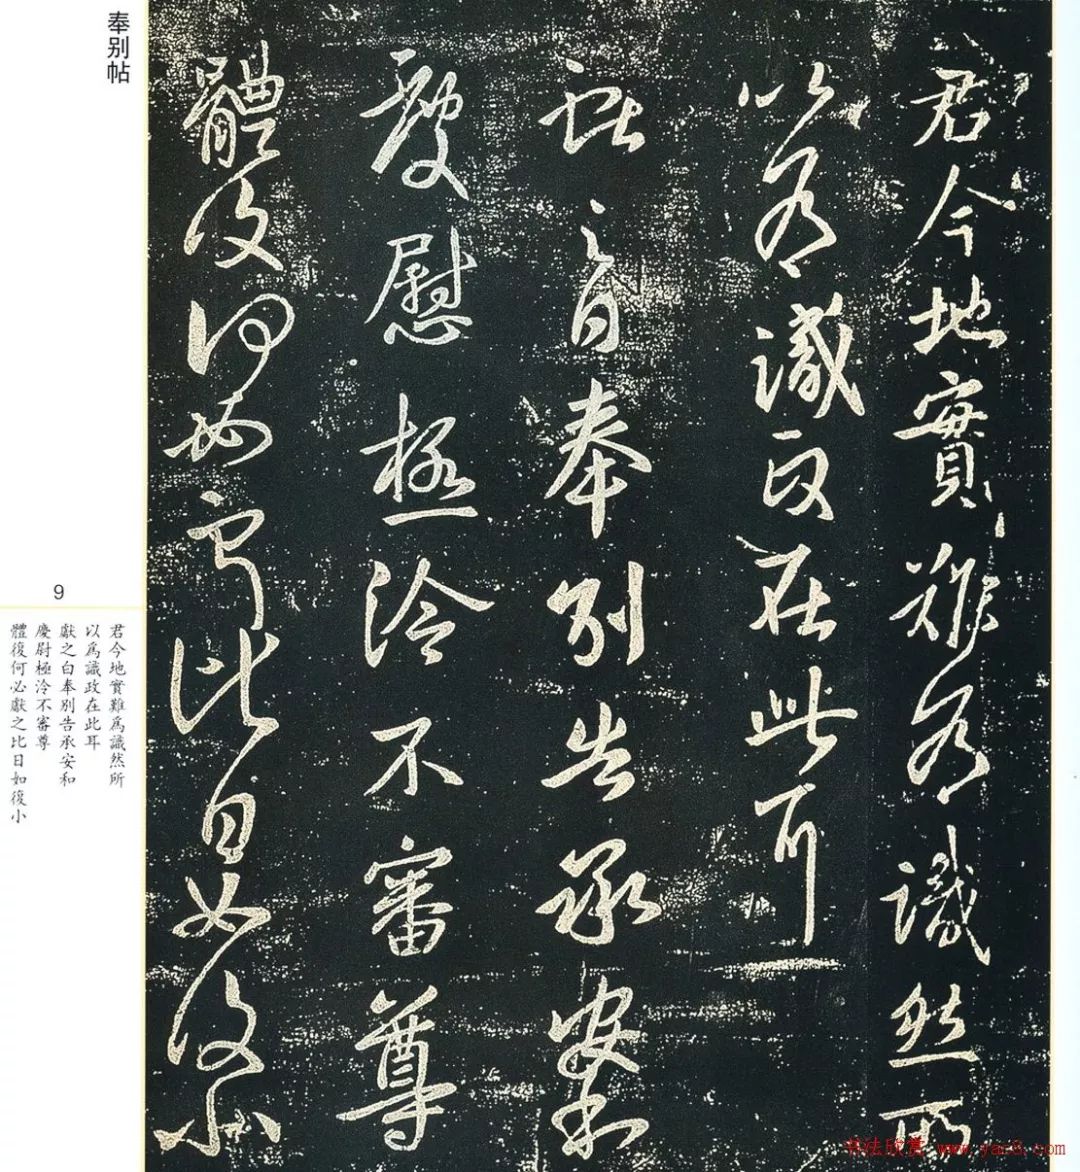 奉别帖
君今地實難為識然所
以為識政在此耳
獻之白奉別告承安和
慶慰極泠不審尊
體復何如比日如復小
9
君今地實難爲識然所
以爲識政在此耳
獻之白奉別告承安和
慶尉極泠不審尊
體復何必獻之比日如復小
书法欣赏 www.yac8.com